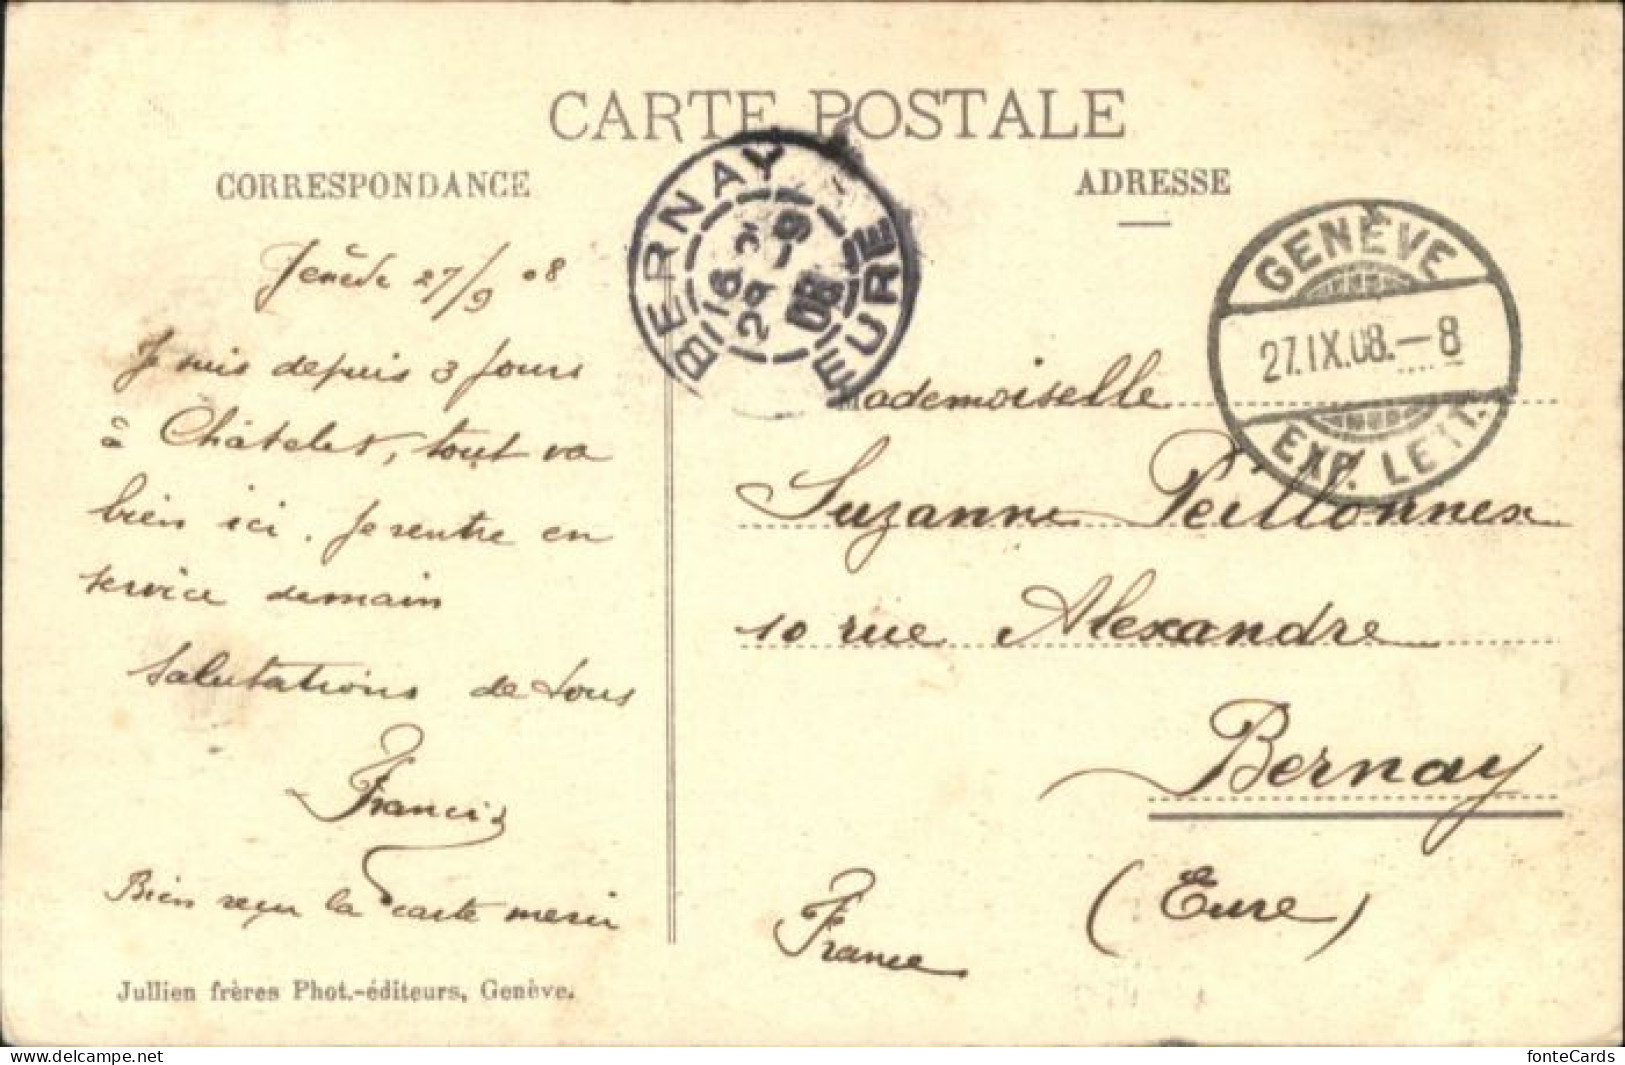 CARTE POSTALE
CORRESPONDANCE
ADRESSE
BERNAY
EURE
16
2
28 - 9
08
GENÈVE
27.IX.08.–8
EXP. LETT.
Genève 27/9 08
Je suis depuis 3 jours
à Châtelet, tout va
bien ici. Je rentre en
service demain
Salutations de tous
Francis
Bien reçu la carte merci
Mademoiselle
Suzanne Peillonnex
10 rue Alexandre
Bernay
(Eure)
France
Jullien frères Phot.-éditeurs, Genève.
https://www.delcampe.net
fonteCards